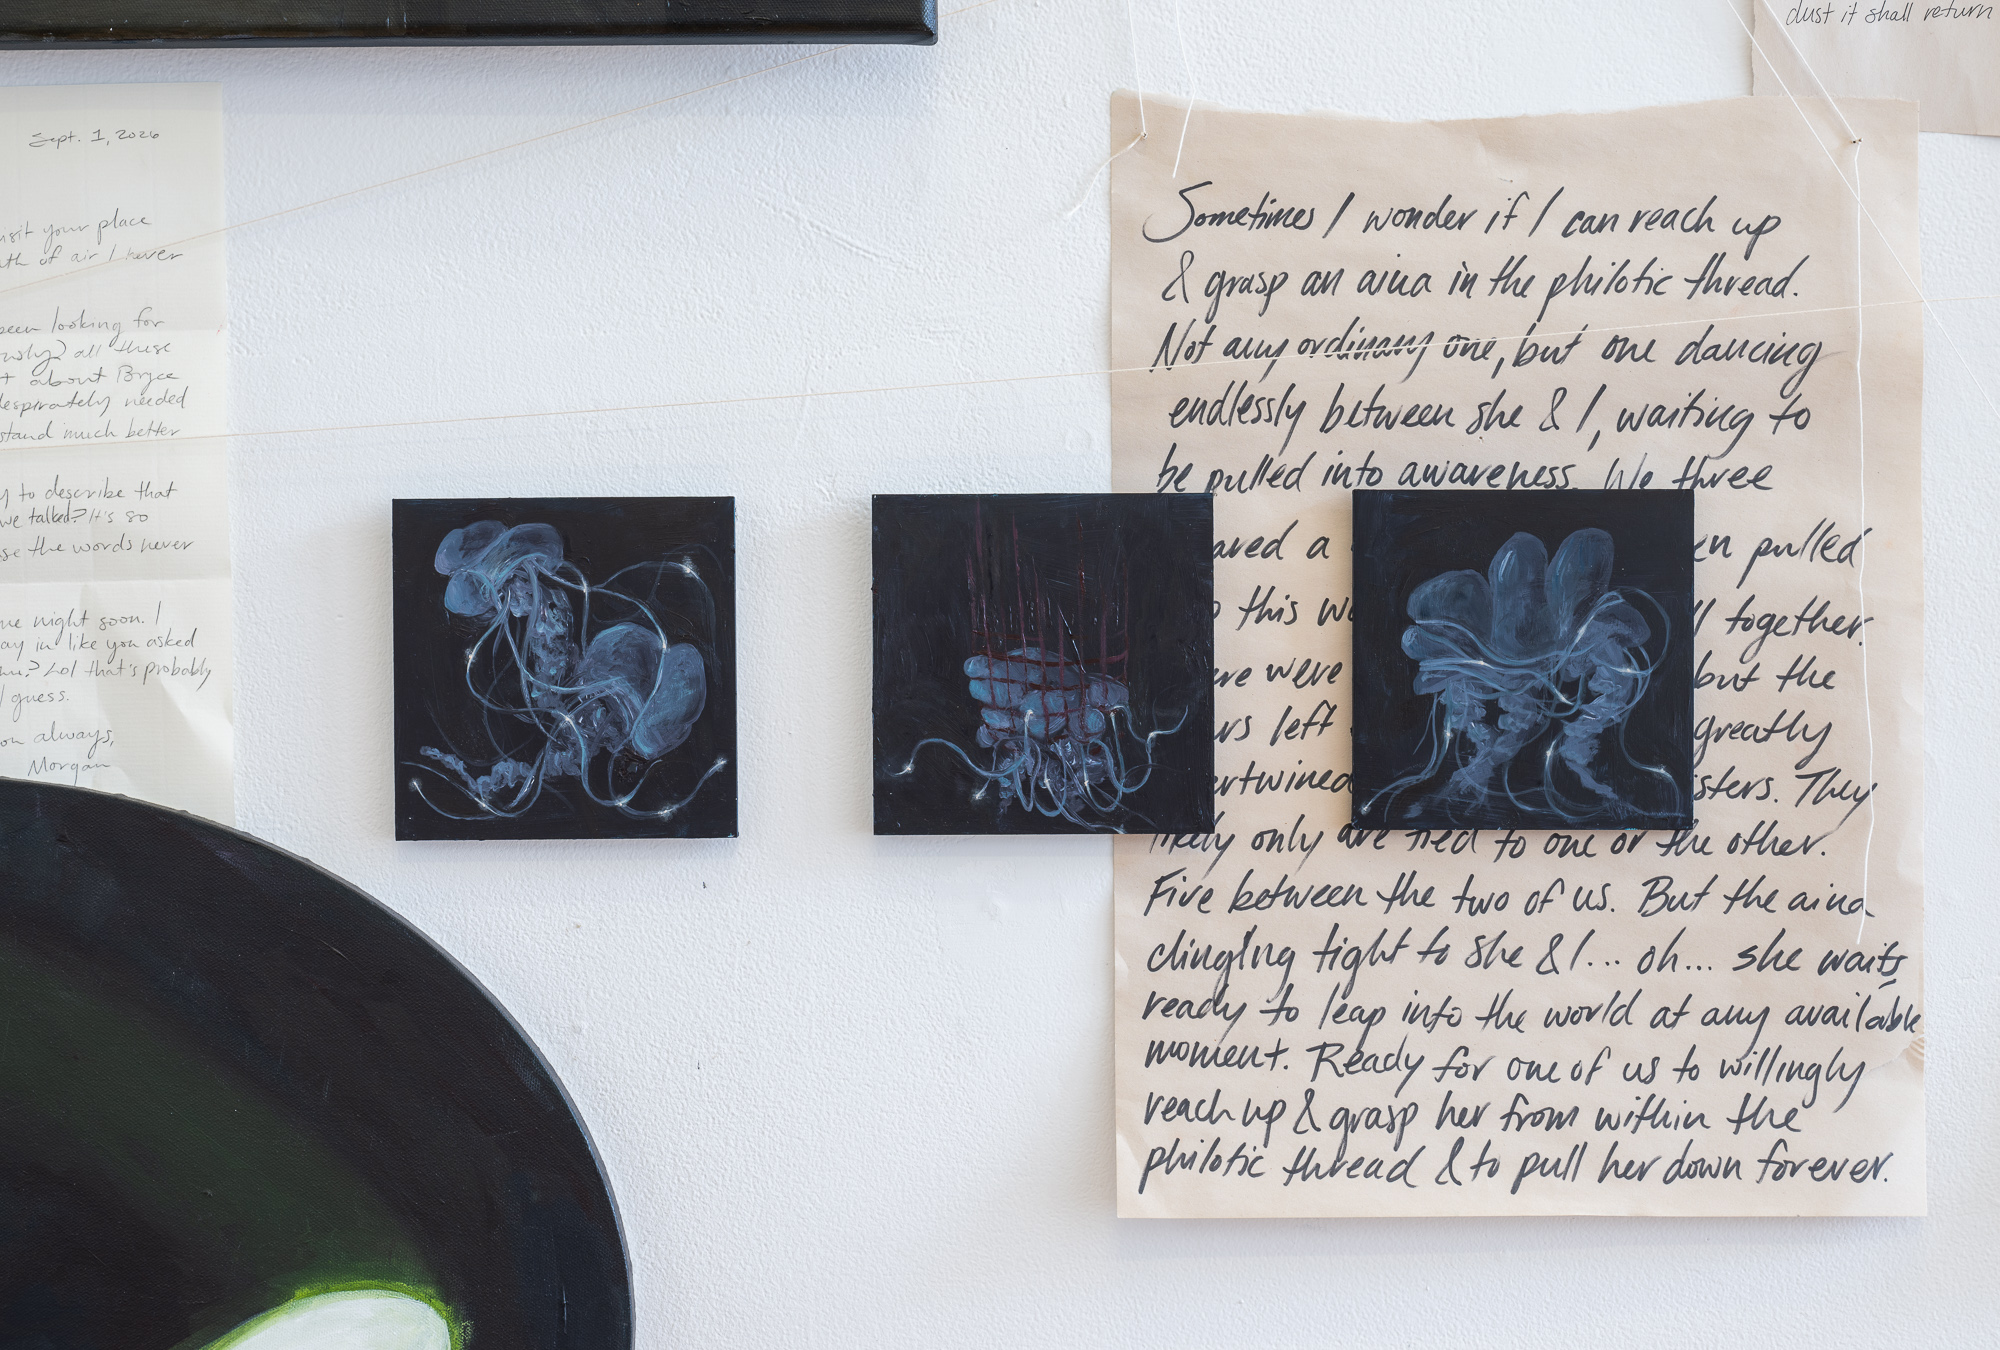 Sept. 1, 2026
your place
of air I never
been looking for
all these
about Bryce
desprately needed
stand much better
to describe that
we talked? It's so
the words never
one night soon. I
in like you asked
? Lol that's probably
I guess.
always,
Morgan
dust it shall return
Sometimes I wonder if I can reach up
& grasp an aiua in the philotic thread.
Not any ordinary one, but one dancing
endlessly between she & I, waiting to
be pulled into awareness. We three
a pulled
this together.
were but the
left greatly
They
likely only are tied to one or the other.
Five between the two of us. But the aiua
clinging tight to she & I... oh... she waits
ready to leap into the world at any available
moment. Ready for one of us to willingly
reach up & grasp her from within the
philotic thread & to pull her down forever.